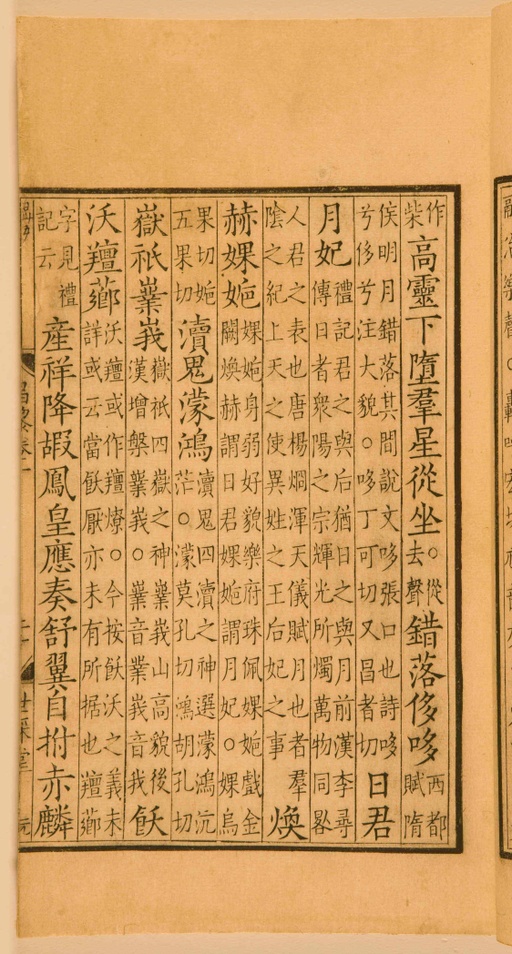 作柴高靈下墮羣星從坐○從去聲錯落侈哆西都賦隋
侯明月錯落其間說文哆張口也詩哆兮侈兮注大貌○哆丁可切又昌者切日君
月妃禮記君之與后猶日之與月前漢李尋傳曰者衆陽之宗輝光所燭萬物同晷
人君之表也唐楊烱渾天儀賦月也者羣陰之紀上天之使異姓之王后妃之事煥
赫婐㛂婐㛂身弱好貌樂府珠佩婐㛂戲金闕煥赫謂日君婐㛂謂月妃○婐烏
果切㛂五果切瀆鬼濛鴻瀆鬼四瀆之神選濛鴻沆茫○濛莫孔切鴻胡孔切
嶽祇嶪峩嶽祇四嶽之神嶪峩山高貌後漢增槃嶪峩○嶪音業峩音我飫
沃羶薌沃羶或作羶燎○今按飫沃之義未詳或云當飫厭亦未有所据也羶薌
字見禮記云產祥降嘏鳳皇應奏舒翼自拊赤麟
昌黎卷一 二 世綵堂